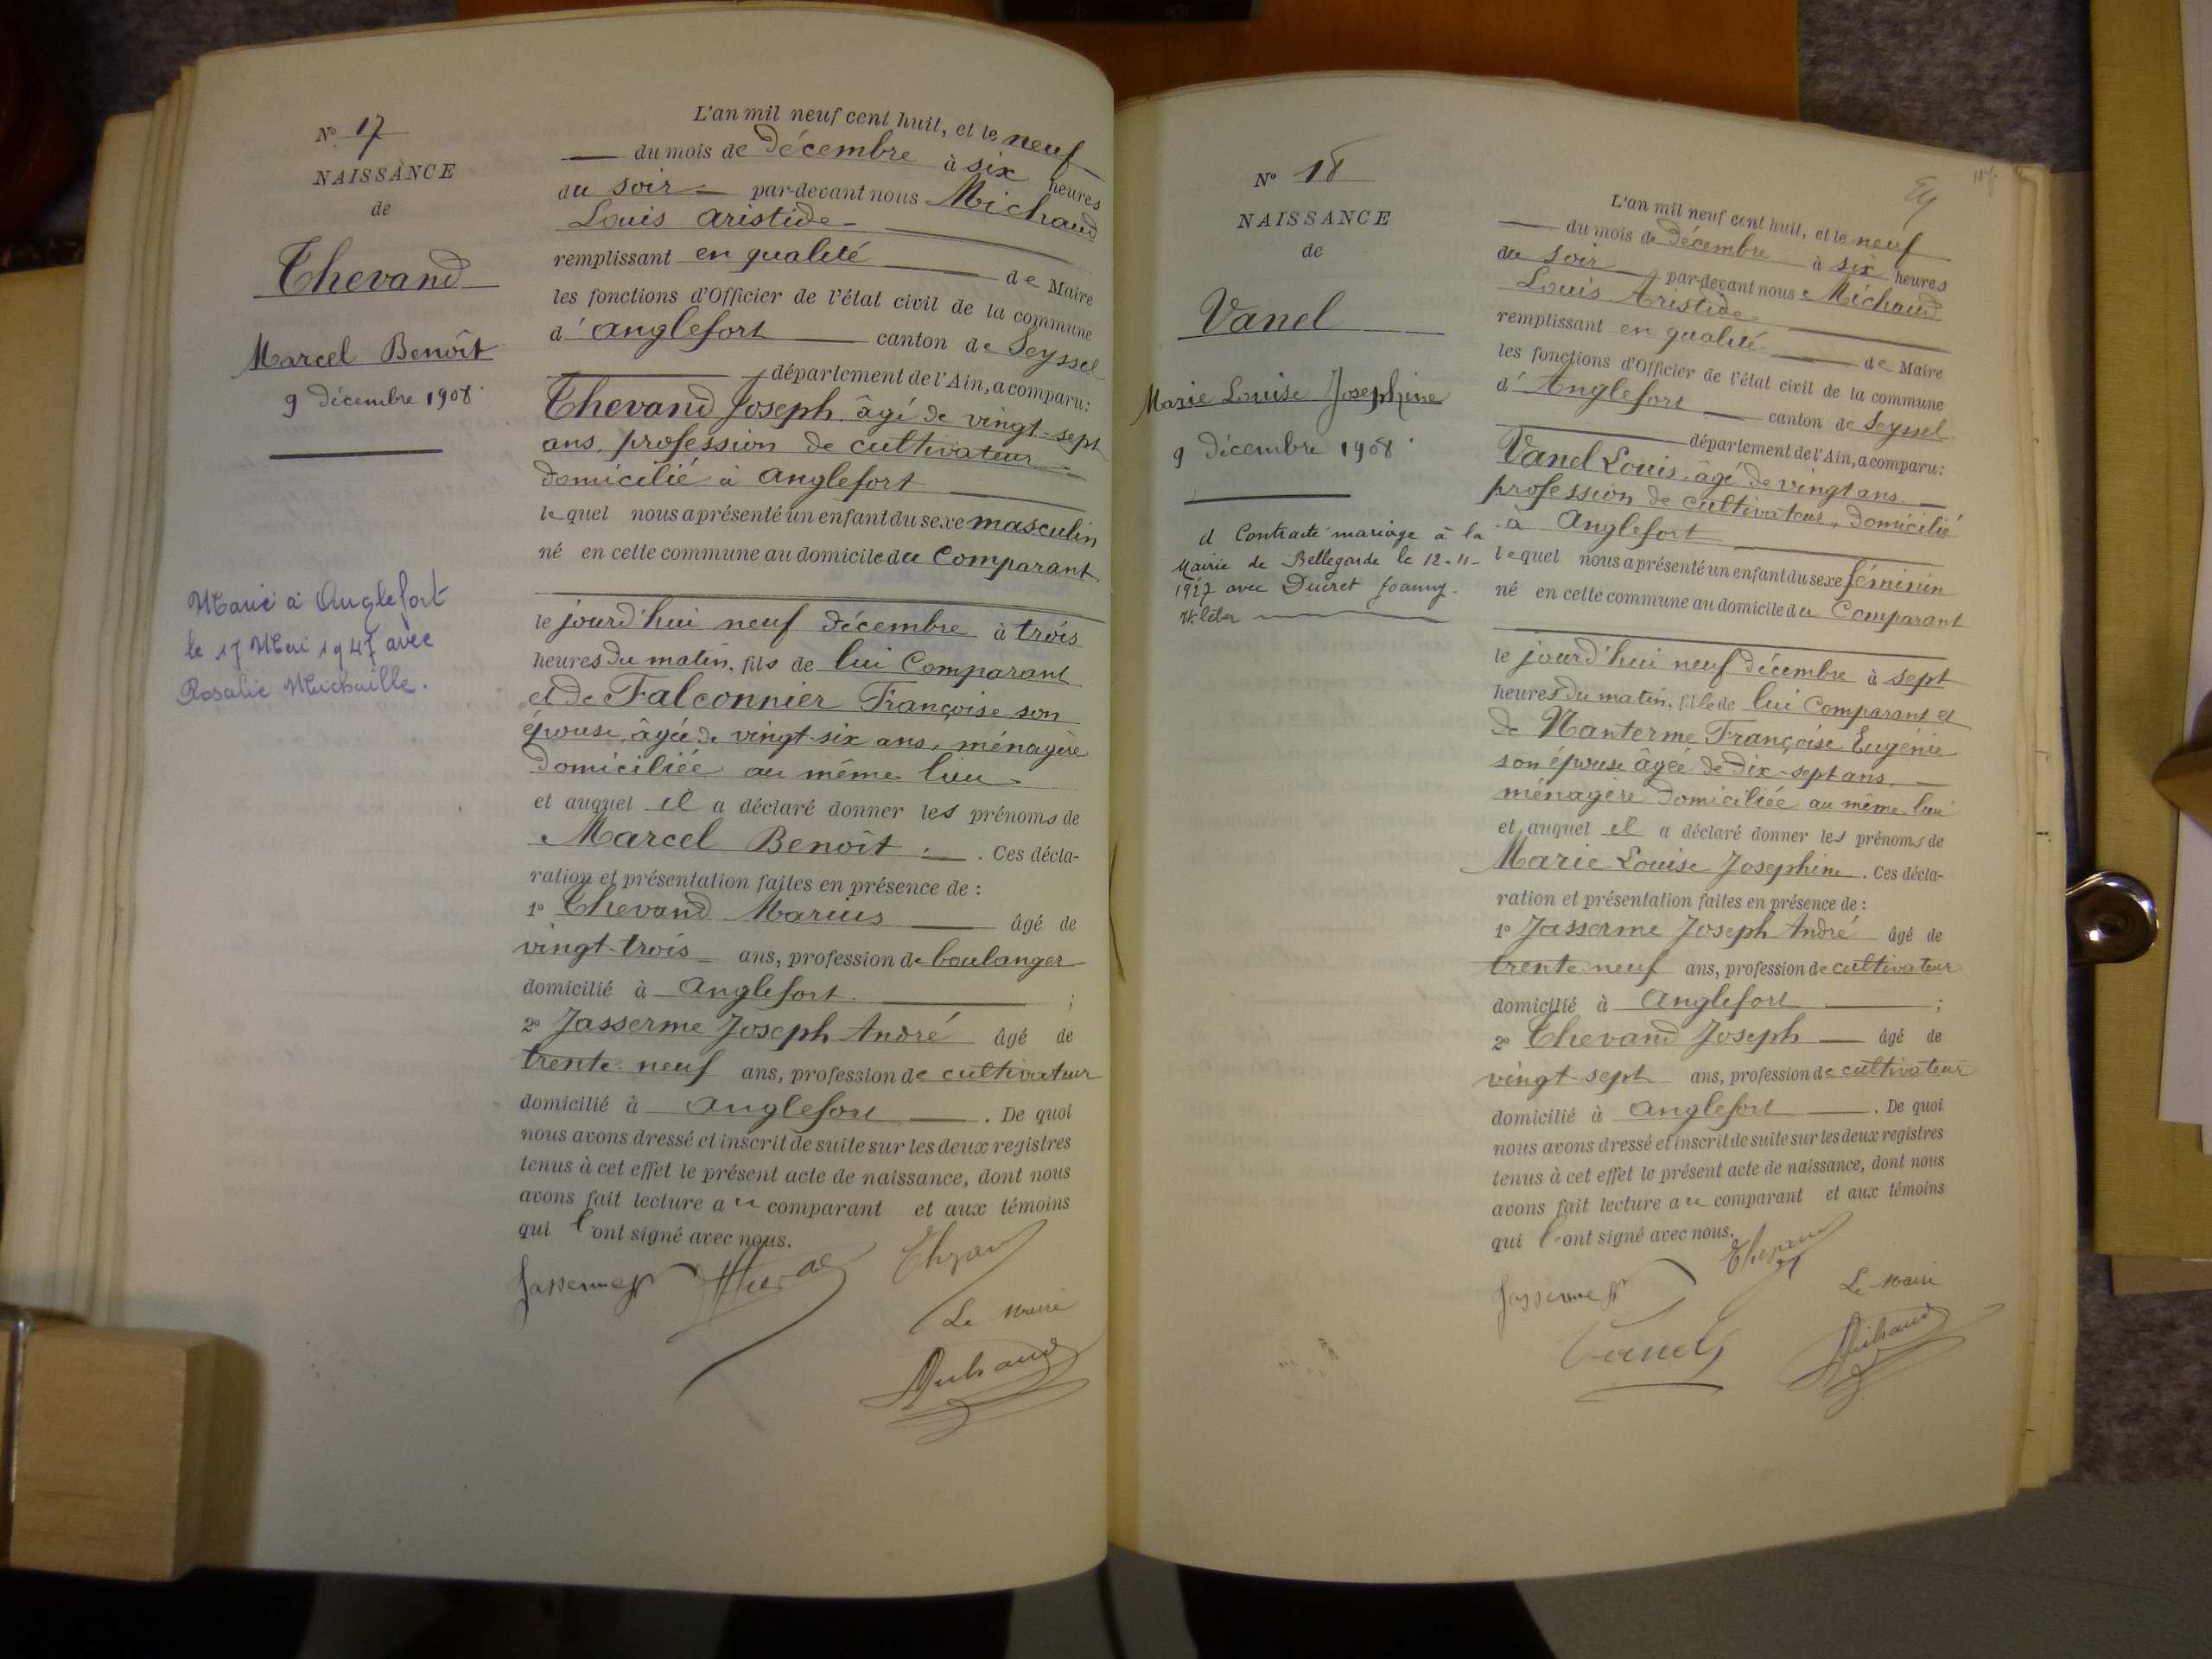 N° 17
NAISSANCE
de
Thevand
Marcel Benoît
9 décembre 1908
Marié à Anglefort
le 17 Mai 1947 avec
Rosalie Michaille.
L'an mil neuf cent huit, et le neuf
du mois de décembre à six heures
du soir par-devant nous Michaud
Louis Aristide
remplissant en qualité de Maire
les fonctions d'Officier de l'état civil de la commune
d' Anglefort canton de Seyssel
département de l'Ain, a comparu:
Thevand Joseph âgé de vingt-sept
ans, profession de cultivateur
domicilié à Anglefort
lequel nous a présenté un enfant du sexe masculin
né en cette commune au domicile du Comparant.
le jourd'hui neuf décembre à trois
heures du matin, fils de lui Comparant
et de Falconnier Françoise son
épouse, âgée de vingt-six ans, ménagère
domiciliée au même lieu
et auquel il a déclaré donner les prénoms de
Marcel Benoît . Ces décla-
ration et présentation faites en présence de :
1° Thevand Marius âgé de
vingt-trois ans, profession de boulanger
domicilié à Anglefort ;
2° Jasserme Joseph André âgé de
trente neuf ans, profession de cultivateur
domicilié à Anglefort . De quoi
nous avons dressé et inscrit de suite sur les deux registres
tenus à cet effet le présent acte de naissance, dont nous
avons fait lecture au comparant et aux témoins
qui l'ont signé avec nous.
Jasserme
Le Maire
Michaud
N° 18
NAISSANCE
de
Vanel
Marie Louise Josephine
9 décembre 1908
d Contracté mariage à la
Mairie de Bellegarde le 12-11-
1927 avec Ducret Joanny.
L'an mil neuf cent huit, et le neuf
du mois de décembre à six heures
du soir par-devant nous Michaud
Louis Aristide
remplissant en qualité de Maire
les fonctions d'Officier de l'état civil de la commune
d' Anglefort canton de Seyssel
département de l'Ain, a comparu:
Vanel Louis, âgé de vingt ans
profession de cultivateur, domicilié
à Anglefort
lequel nous a présenté un enfant du sexe féminin
né en cette commune au domicile du Comparant
le jourd'hui neuf décembre à sept
heures du matin, fille de lui Comparant et
de Nanterme Françoise Eugénie
son épouse âgée de dix-sept ans,
ménagère domiciliée au même lieu
et auquel il a déclaré donner les prénoms de
Marie Louise Josephine. Ces décla-
ration et présentation faites en présence de :
1° Jasserme Joseph André âgé de
trente neuf ans, profession de cultivateur
domicilié à Anglefort ;
2° Thevand Joseph âgé de
vingt-sept ans, profession de cultivateur
domicilié à Anglefort . De quoi
nous avons dressé et inscrit de suite sur les deux registres
tenus à cet effet le présent acte de naissance, dont nous
avons fait lecture au comparant et aux témoins
qui l'ont signé avec nous.
Jasserme
Le Maire
Vanel
Michaud